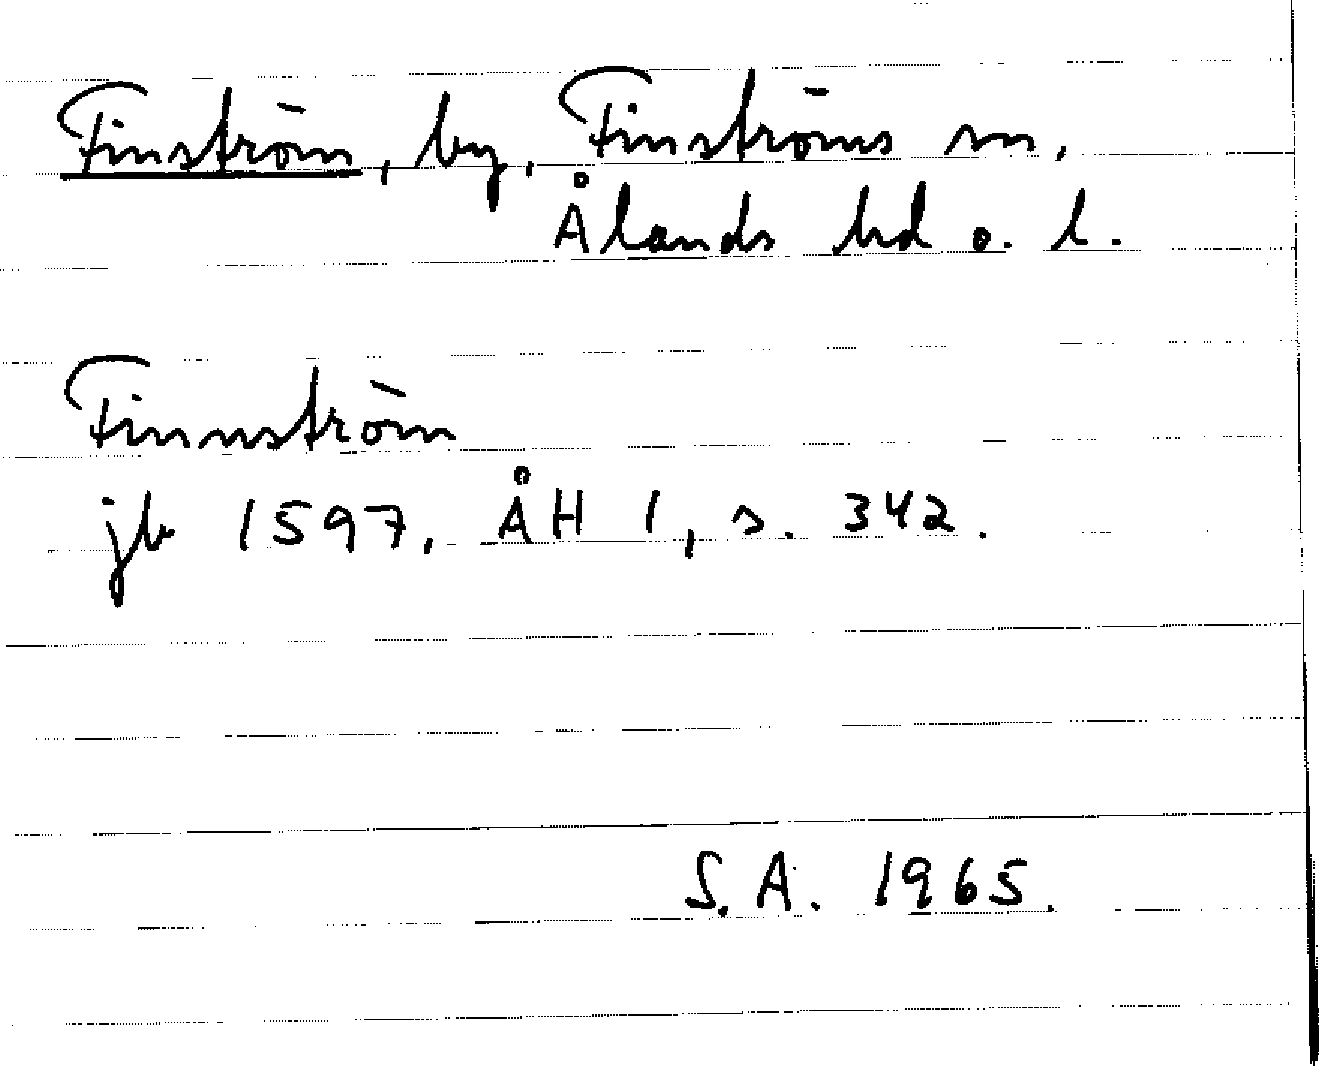 Finström, by, Finströms sn,
Ålands hd o. l.
Finnström
jb 1597, ÅH 1, s. 342.
S.A. 1965.